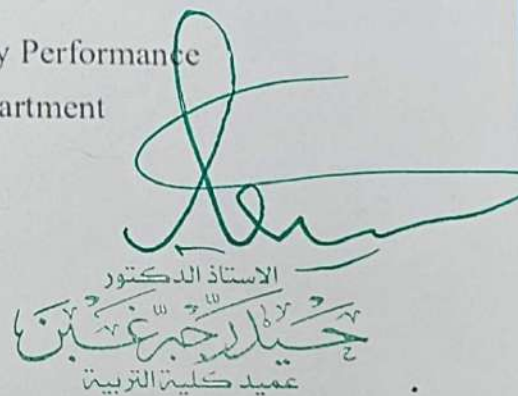 y Performance
artment
الاستاذ الدكتور
حيدر
عميد كلية التربية